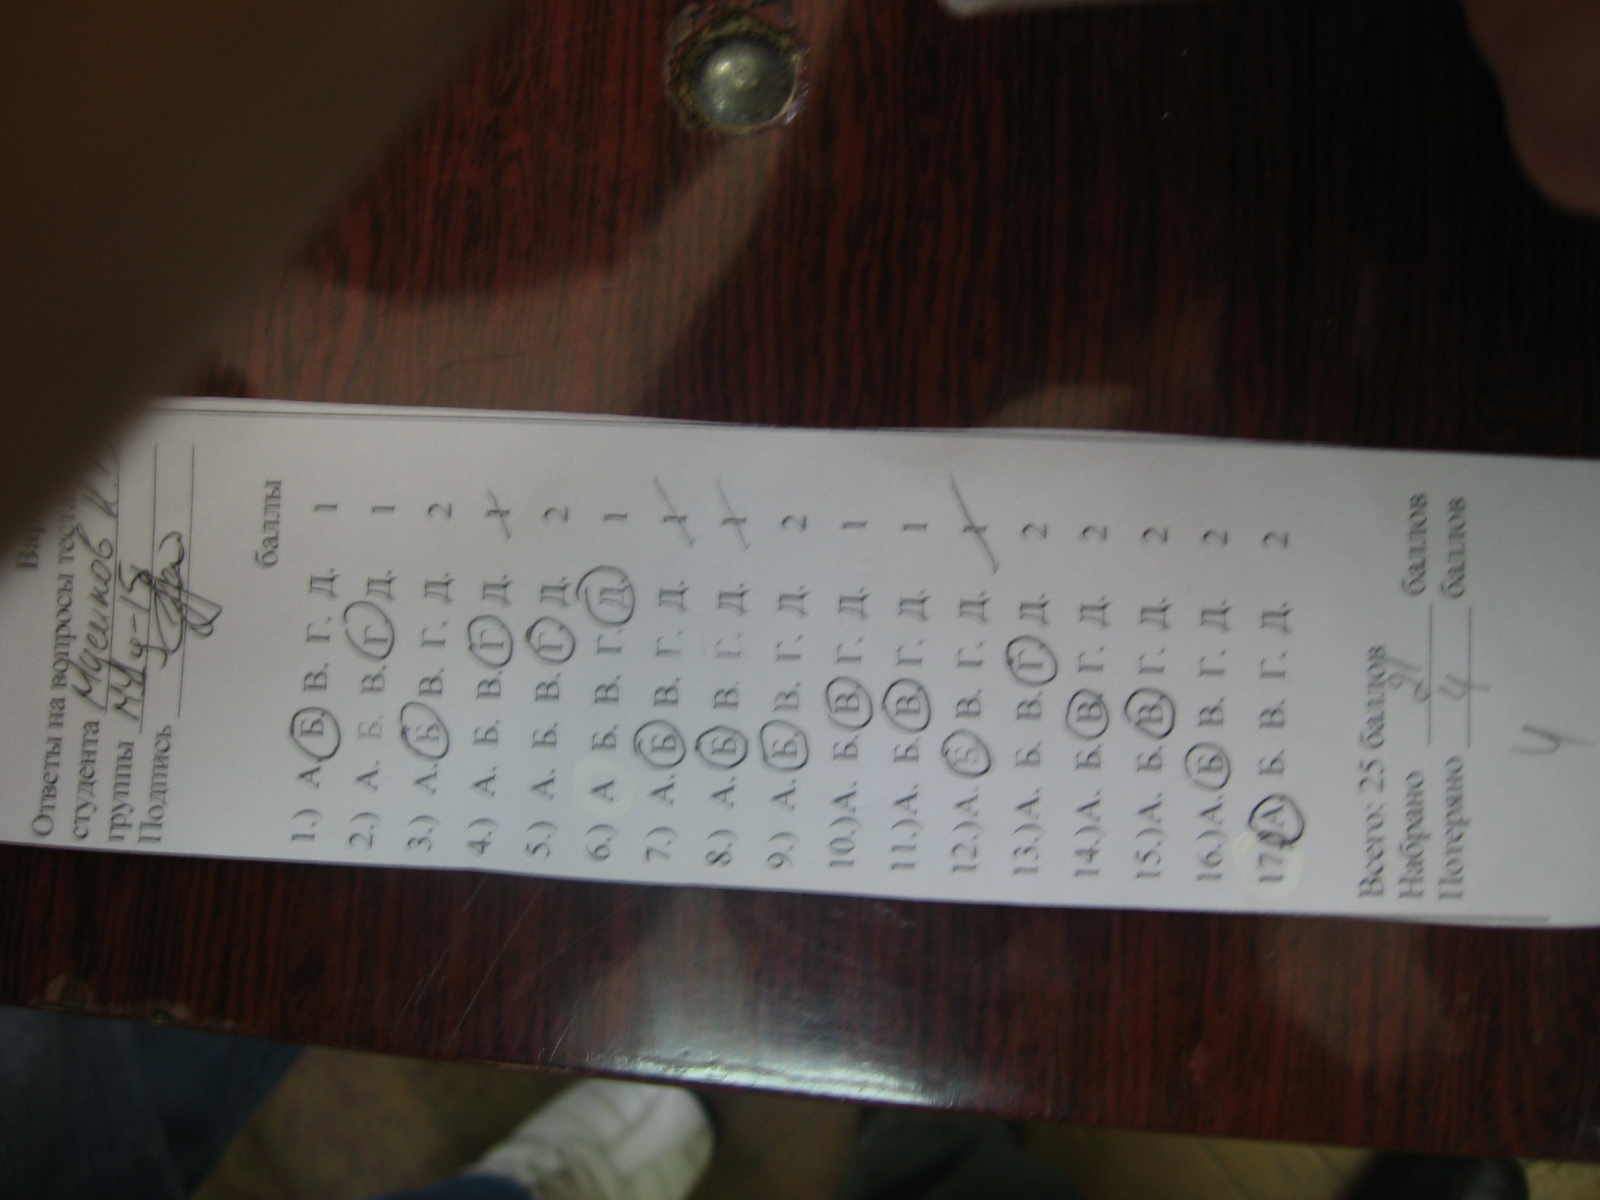 Ответы на вопросы
студента
группы
Подпись
баллы
1.) А. Б. В. Г. Д. 1
2.) А. Б. В. Г. Д. 1
3.) А. Б. В. Г. Д. 2
4.) А. Б. В. Г. Д. 1
5.) А. Б. В. Г. Д. 2
6.) А Б. В. Г. Д. 1
7.) А. Б. В. Г. Д. 1
8.) А. Б. В. Г. Д. 1
9.) А. Б. В. Г. Д. 2
10.) А. Б. В. Г. Д. 1
11.) А. Б. В. Г. Д. 1
12.) А. Б. В. Г. Д. 1
13.) А. Б. В. Г. Д. 2
14.) А. Б. В. Г. Д. 2
15.) А. Б. В. Г. Д. 2
16.) А. Б. В. Г. Д. 2
17. А. Б. В. Г. Д. 2
Всего: 25 баллов
Набрано 21 баллов
Потеряно 4 баллов
4